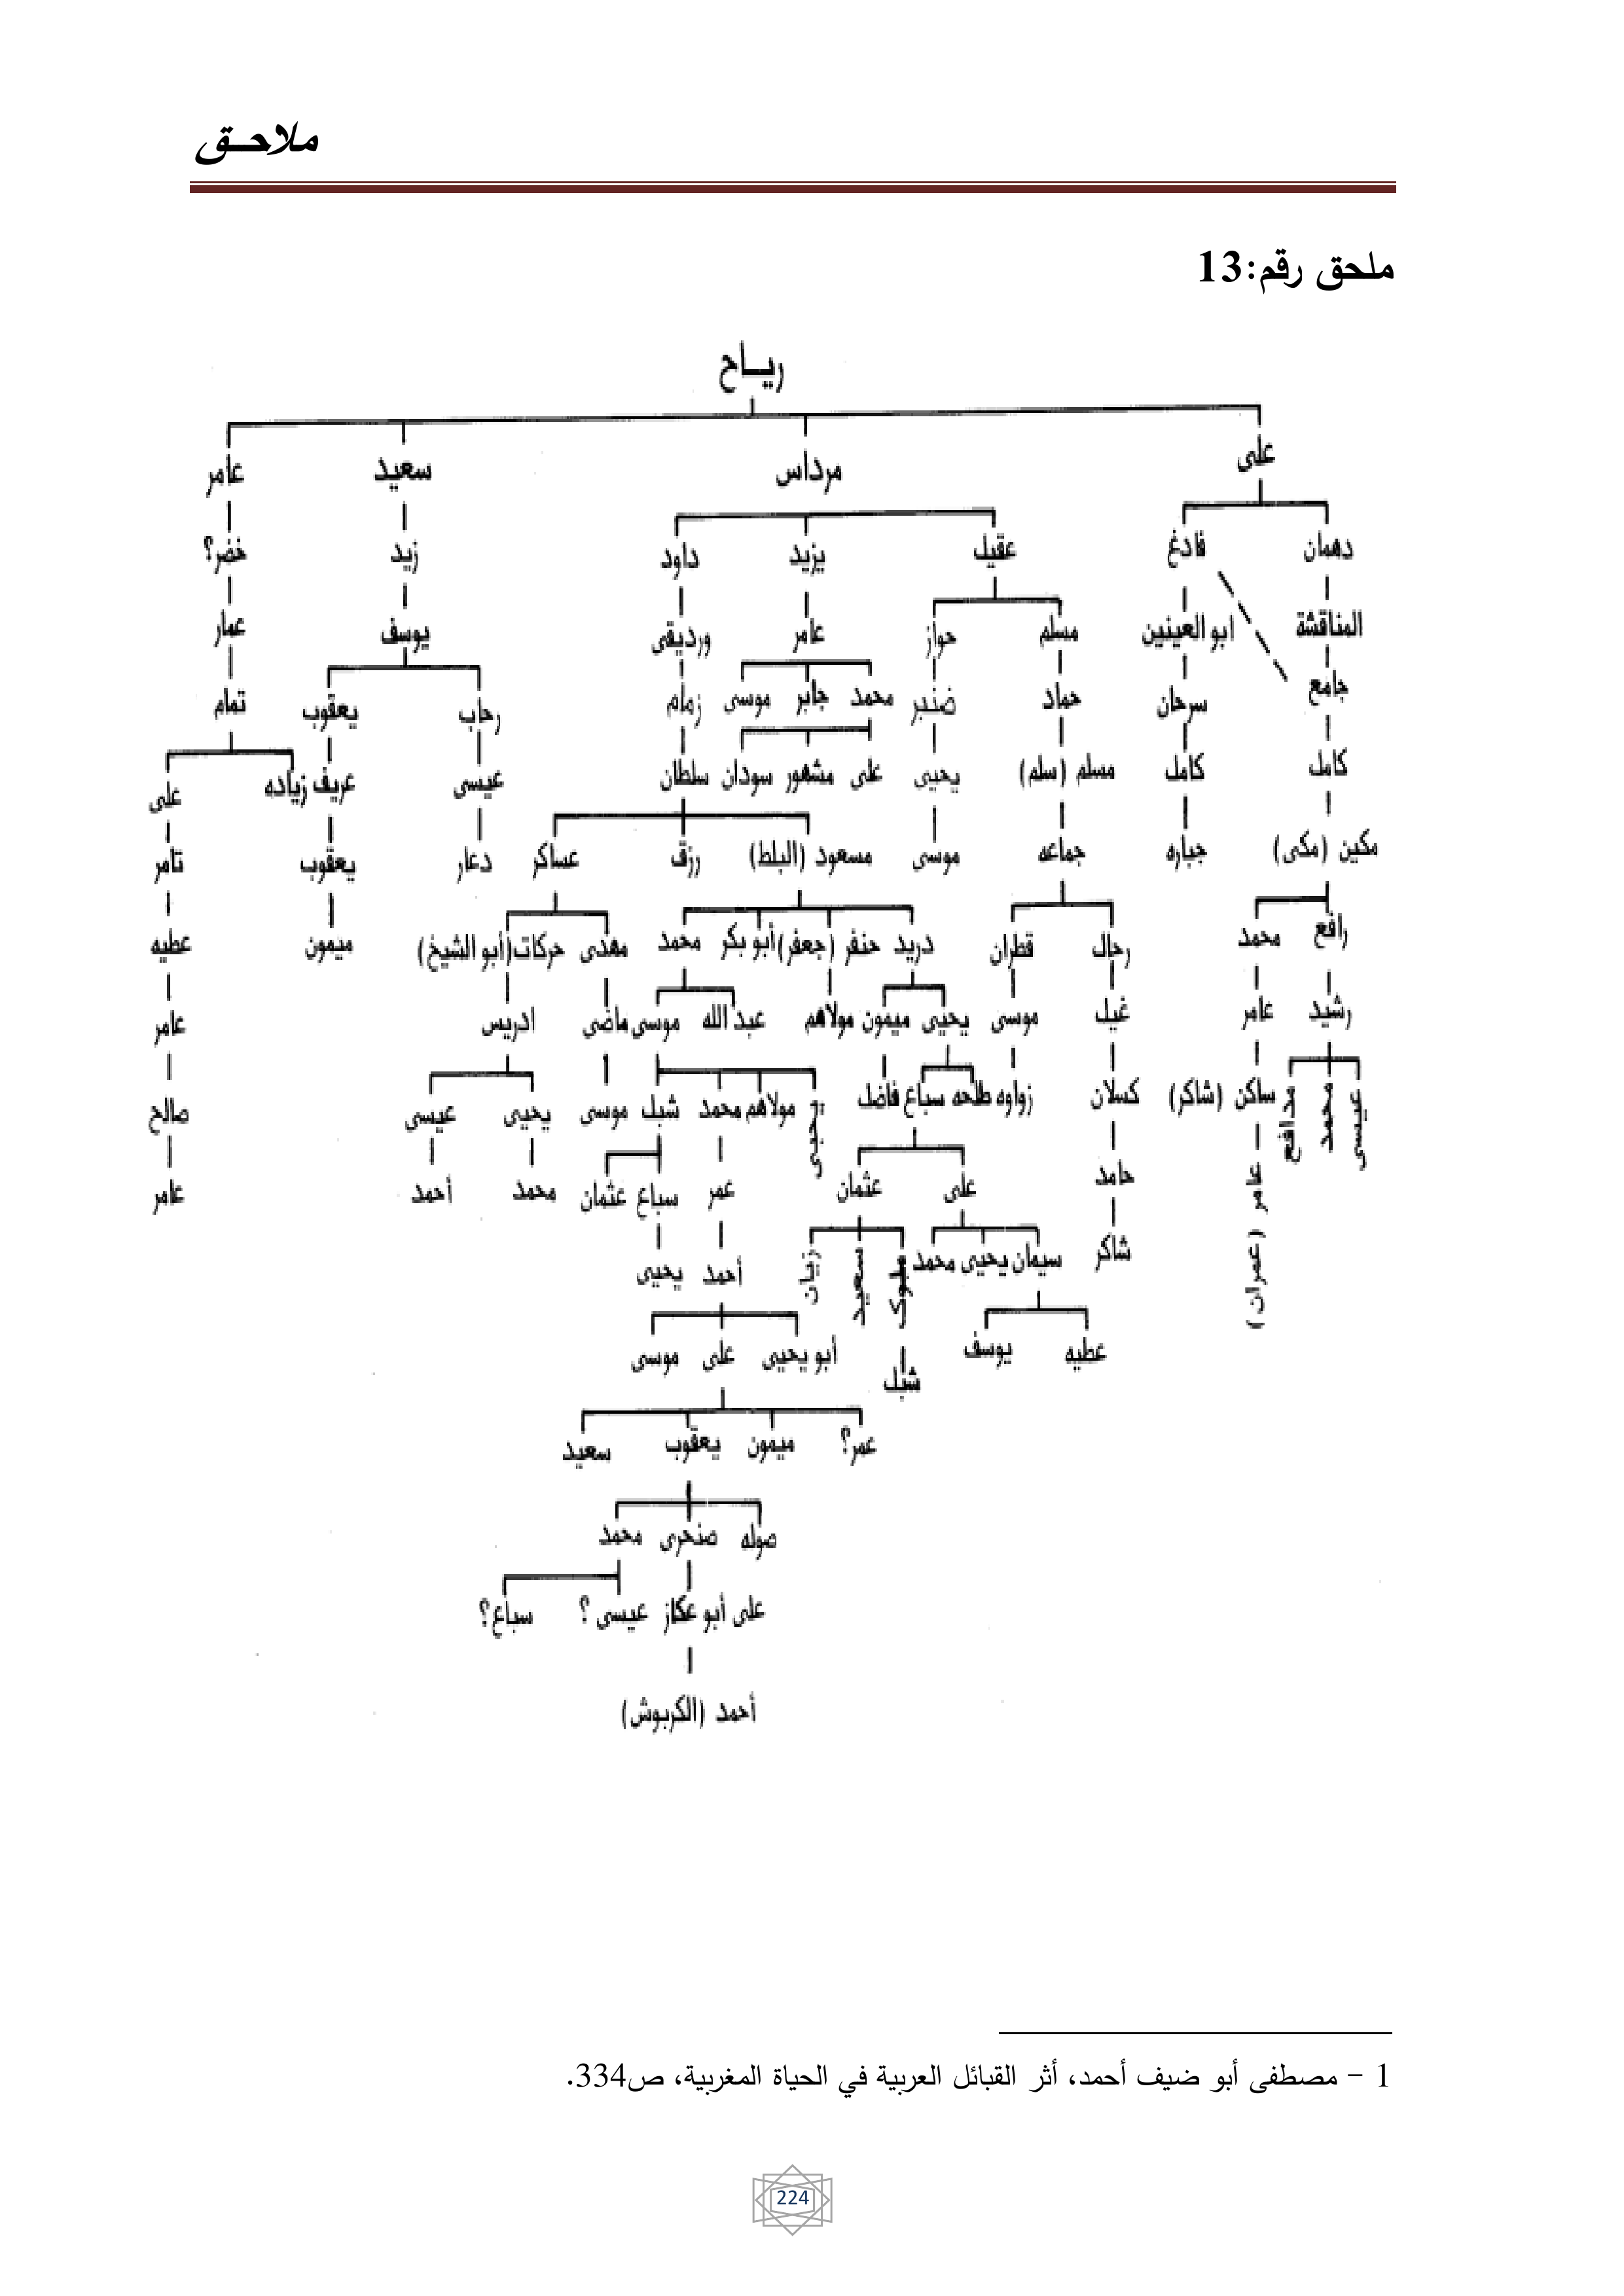 ملاحـق
ملحق رقم:13
رياح
على مرداس سعيد عامر
دهمان فادغ عقيل يزيد داود زيد خضر؟
المناقشة ابو العينين مسلم جواز عامر ورديقى يوسف عمار
جامع سرحان حماد ضنبر محمد جابر موسى زمام رحاب يعقوب تمام
كامل كامل مسلم (سلم) يحيى على مشهور سودان سلطان عيسى عريف زياده على
مكين (مكى) جباره جماعه موسى مسعود (البلط) رزق عساكر دعار يعقوب تامر
رافع محمد رحال قطران دريد حنفر (جعفر) أبو بكر محمد مهدى حركات (أبو الشيخ) ميمون عطيه
رشيد عامر غيل موسى يحيى ميمون مولاهم عبد الله موسى ماضى ادريس عامر
عيسى محمد مدافع ساكن (شاكر) كسلان زواوه طلحه سباع فاضل يحيى مولاهم محمد شبل موسى يحيى عيسى صالح
عامر (عمران) حامد على عثمان عمر سباع عثمان محمد أحمد عامر
شاكر سيمان يحيى محمد سعيد زيان أحمد يحيى
عطيه يوسف شبل أبو يحيى على موسى
عمر؟ ميمون يعقوب سعيد
صوله صنحرى محمد
على أبو عكاز عيسى ؟ سباع؟
أحمد (الكربوش)
1 – مصطفى أبو ضيف أحمد، أثر القبائل العربية في الحياة المغربية، ص334.
224